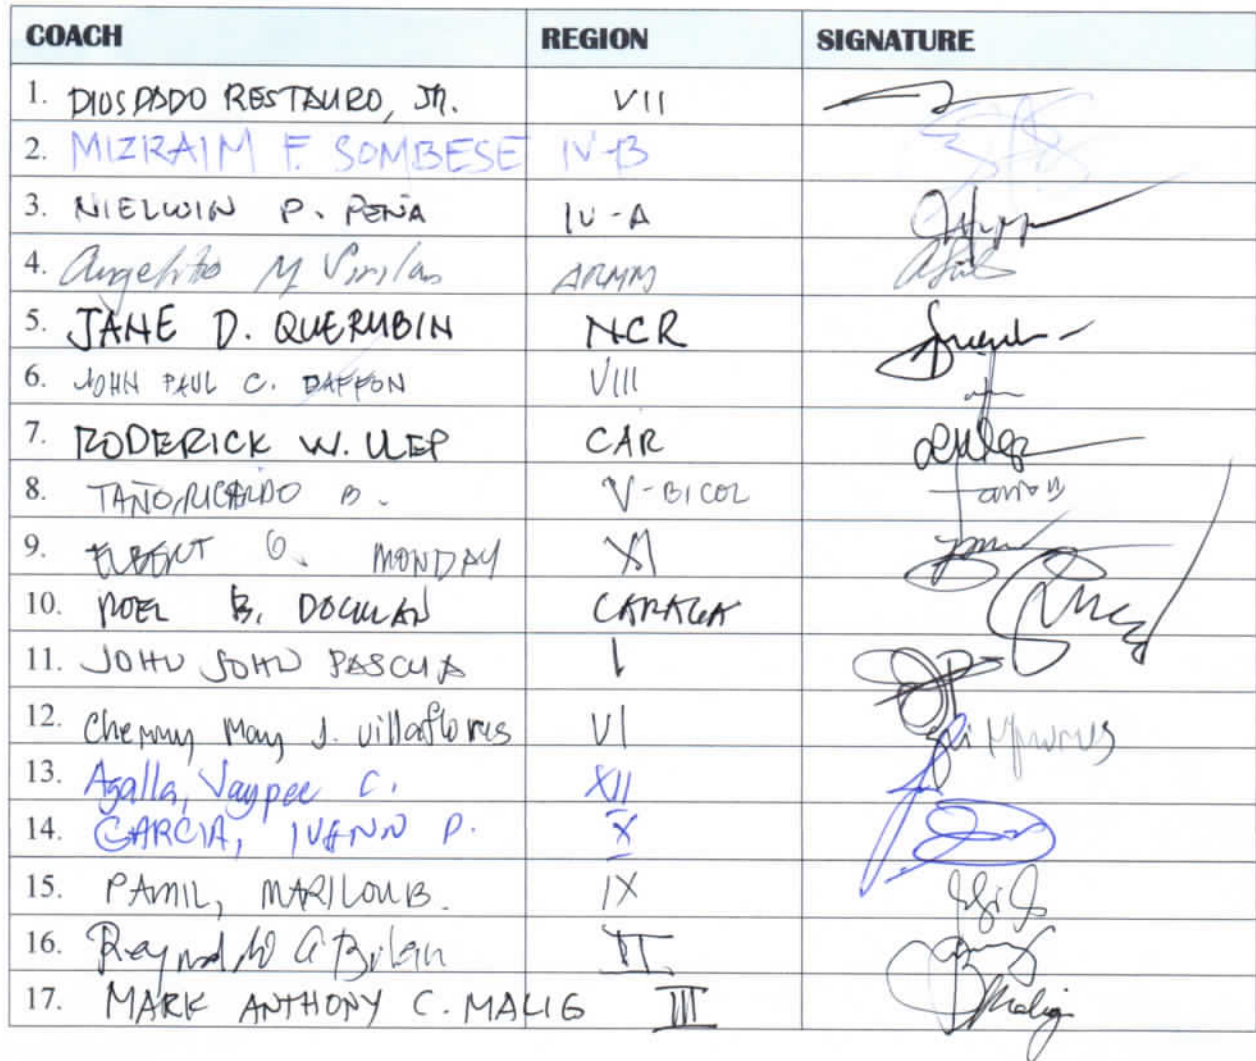 COACH REGION SIGNATURE
1. DIOSDADO RESTAURO, JR. VII
2. MIZRAIM F. SOMBESE IV-B
3. NIELWIN P. PEÑA IV-A
4. Angelito M ARMM
5. JANE D. QUERUBIN NCR
6. JOHN PAUL C. DAFFON VIII
7. RODERICK W. ULEP CAR
8. TAÑO, RICARDO B. V-BICOL
9. ELBERT O. MONDAY XI
10. NOEL B. CARAGA
11. JOHN JOHN PASCUA I
12. May J. Villaflores VI
13. Agalla, Jaypee C. XII
14. GARCIA, IVANN P. X
15. PAMIL, MARILOU B. IX
16. Reynaldo G II
17. MARK ANTHONY C. MALIG III Malig